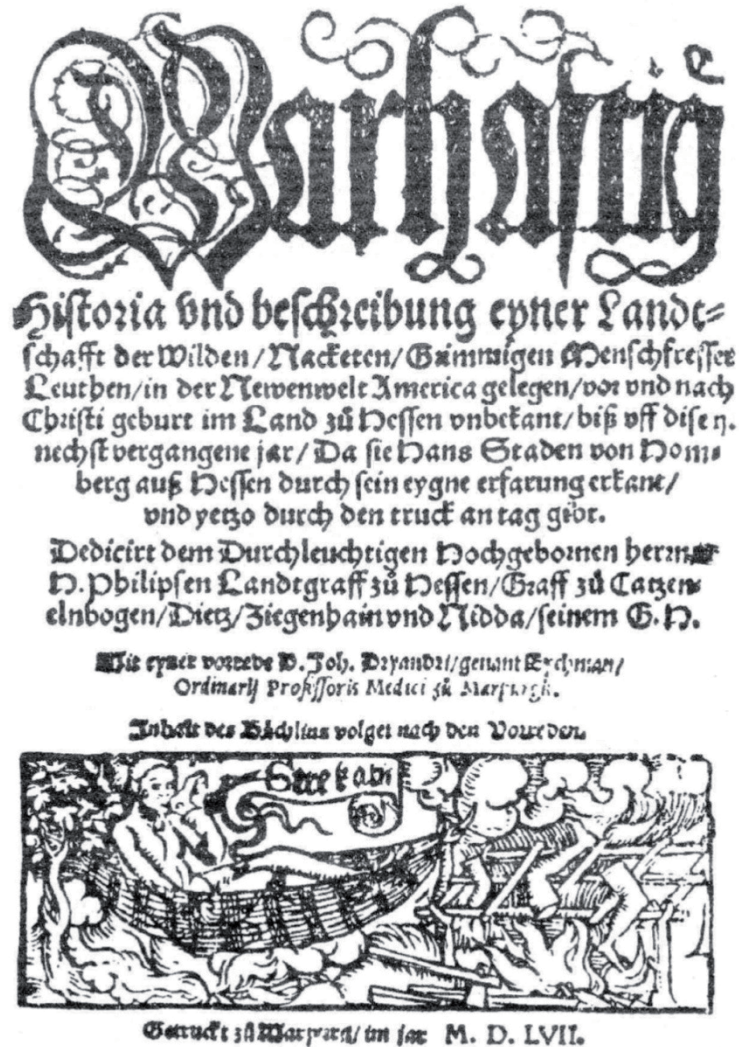 Warhaftig
Historia vnd beschreibung eyner Landt-
schafft der Wilden/Nacketen/Grimmigen Menschfresser
Leuthen/in der Newenwelt America gelegen/vor vnd nach
Christi geburt im Land zů Hessen vnbekant/biß vff dise ij.
nechst vergangene jar/Da sie Hans Staden von Hom-
berg auß Hessen durch sein eygne erfarung erkant/
vnd yetzo durch den truck an tag gibt.
Dedicirt dem Durchleuchtigen Hochgebornen herrn
H. Philipsen Landtgraff zů Hessen/Graff zů Catzen-
elnbogen/Dietz/Ziegenhain vnd Nidda/seinem G. H.
Mit eyner vorrede D. Joh. Dryandri/genant Eychman/
Ordinarij Professoris Medici zů Marpurgk.
Inhalt des Büchlins volget nach den Vorreden.
Getruckt zů Marpurg/im jar M. D. LVII.